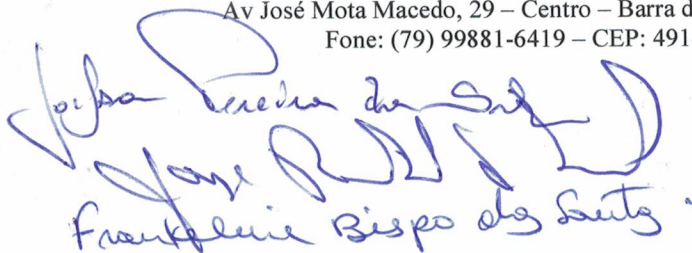 Av José Mota Macedo, 29 – Centro – Barra d
Fone: (79) 99881-6419 – CEP: 491
Pereira da Silva
Jorge
Bispo dos Santos